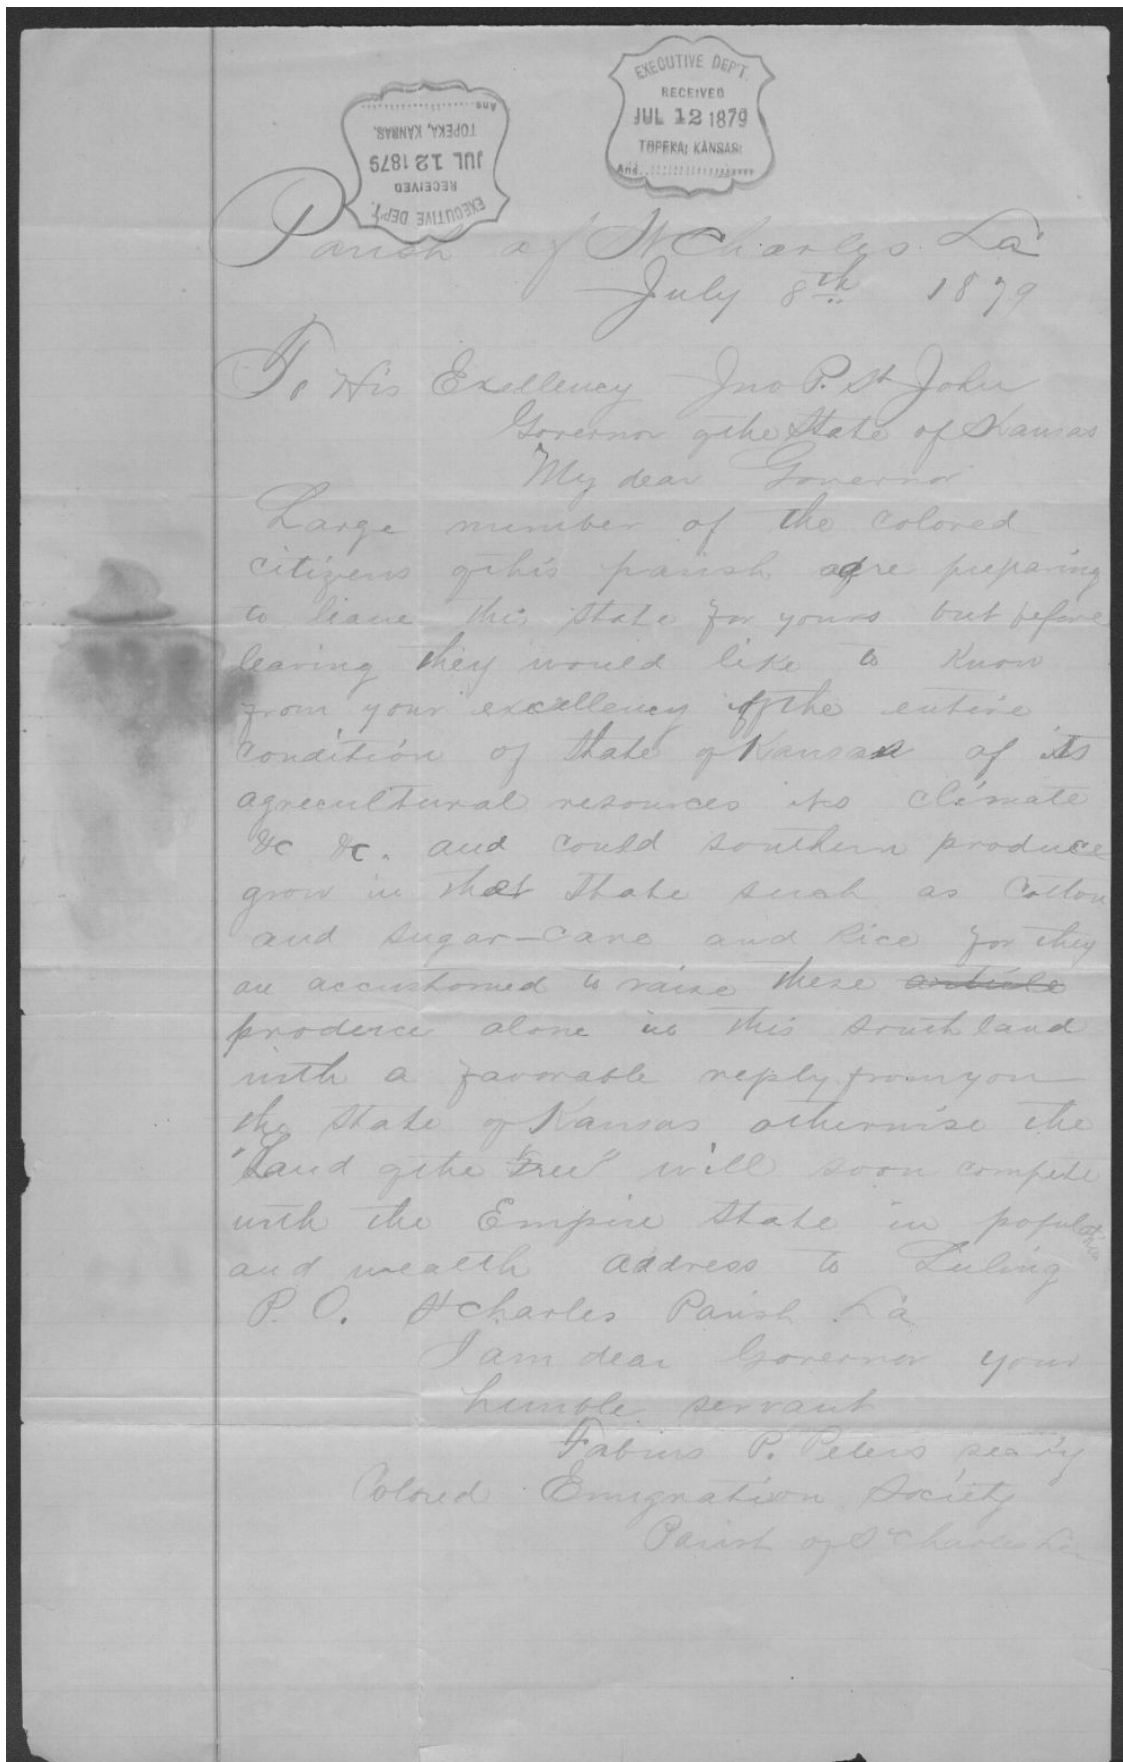 EXECUTIVE DEP'T.
RECEIVED
JUL 12 1879
TOPEKA, KANSAS.
Ans.
EXECUTIVE DEP'T.
RECEIVED
JUL 12 1879
TOPEKA, KANSAS.
Ans.
Parish of St Charles La
July 8th 1879
To His Exellency Jno P. St John
Governor of the State of Kansas
My dear Governor
Large number of the colored
citizens of this parish are preparing
to leave this state for yours but before
leaving they would like to know
from your excellency of the entire
condition of State of Kansas of its
agrecultural resources its climate
&c &c. and could southern produce
grow in that State such as Cotton
and sugar-cane and Rice for they
are accustomed to raise these article
produce alone in this south land
with a favorable reply from you
the State of Kansas otherwise the
"Land of the Free" will soon compete
with the Empire State in population
and wealth address to Luling
P. O. St Charles Parish La
I am dear Governor your
humble servant
Fabius P. Peters sec'ty
Colored Emigration Society
Parish of St Charles La